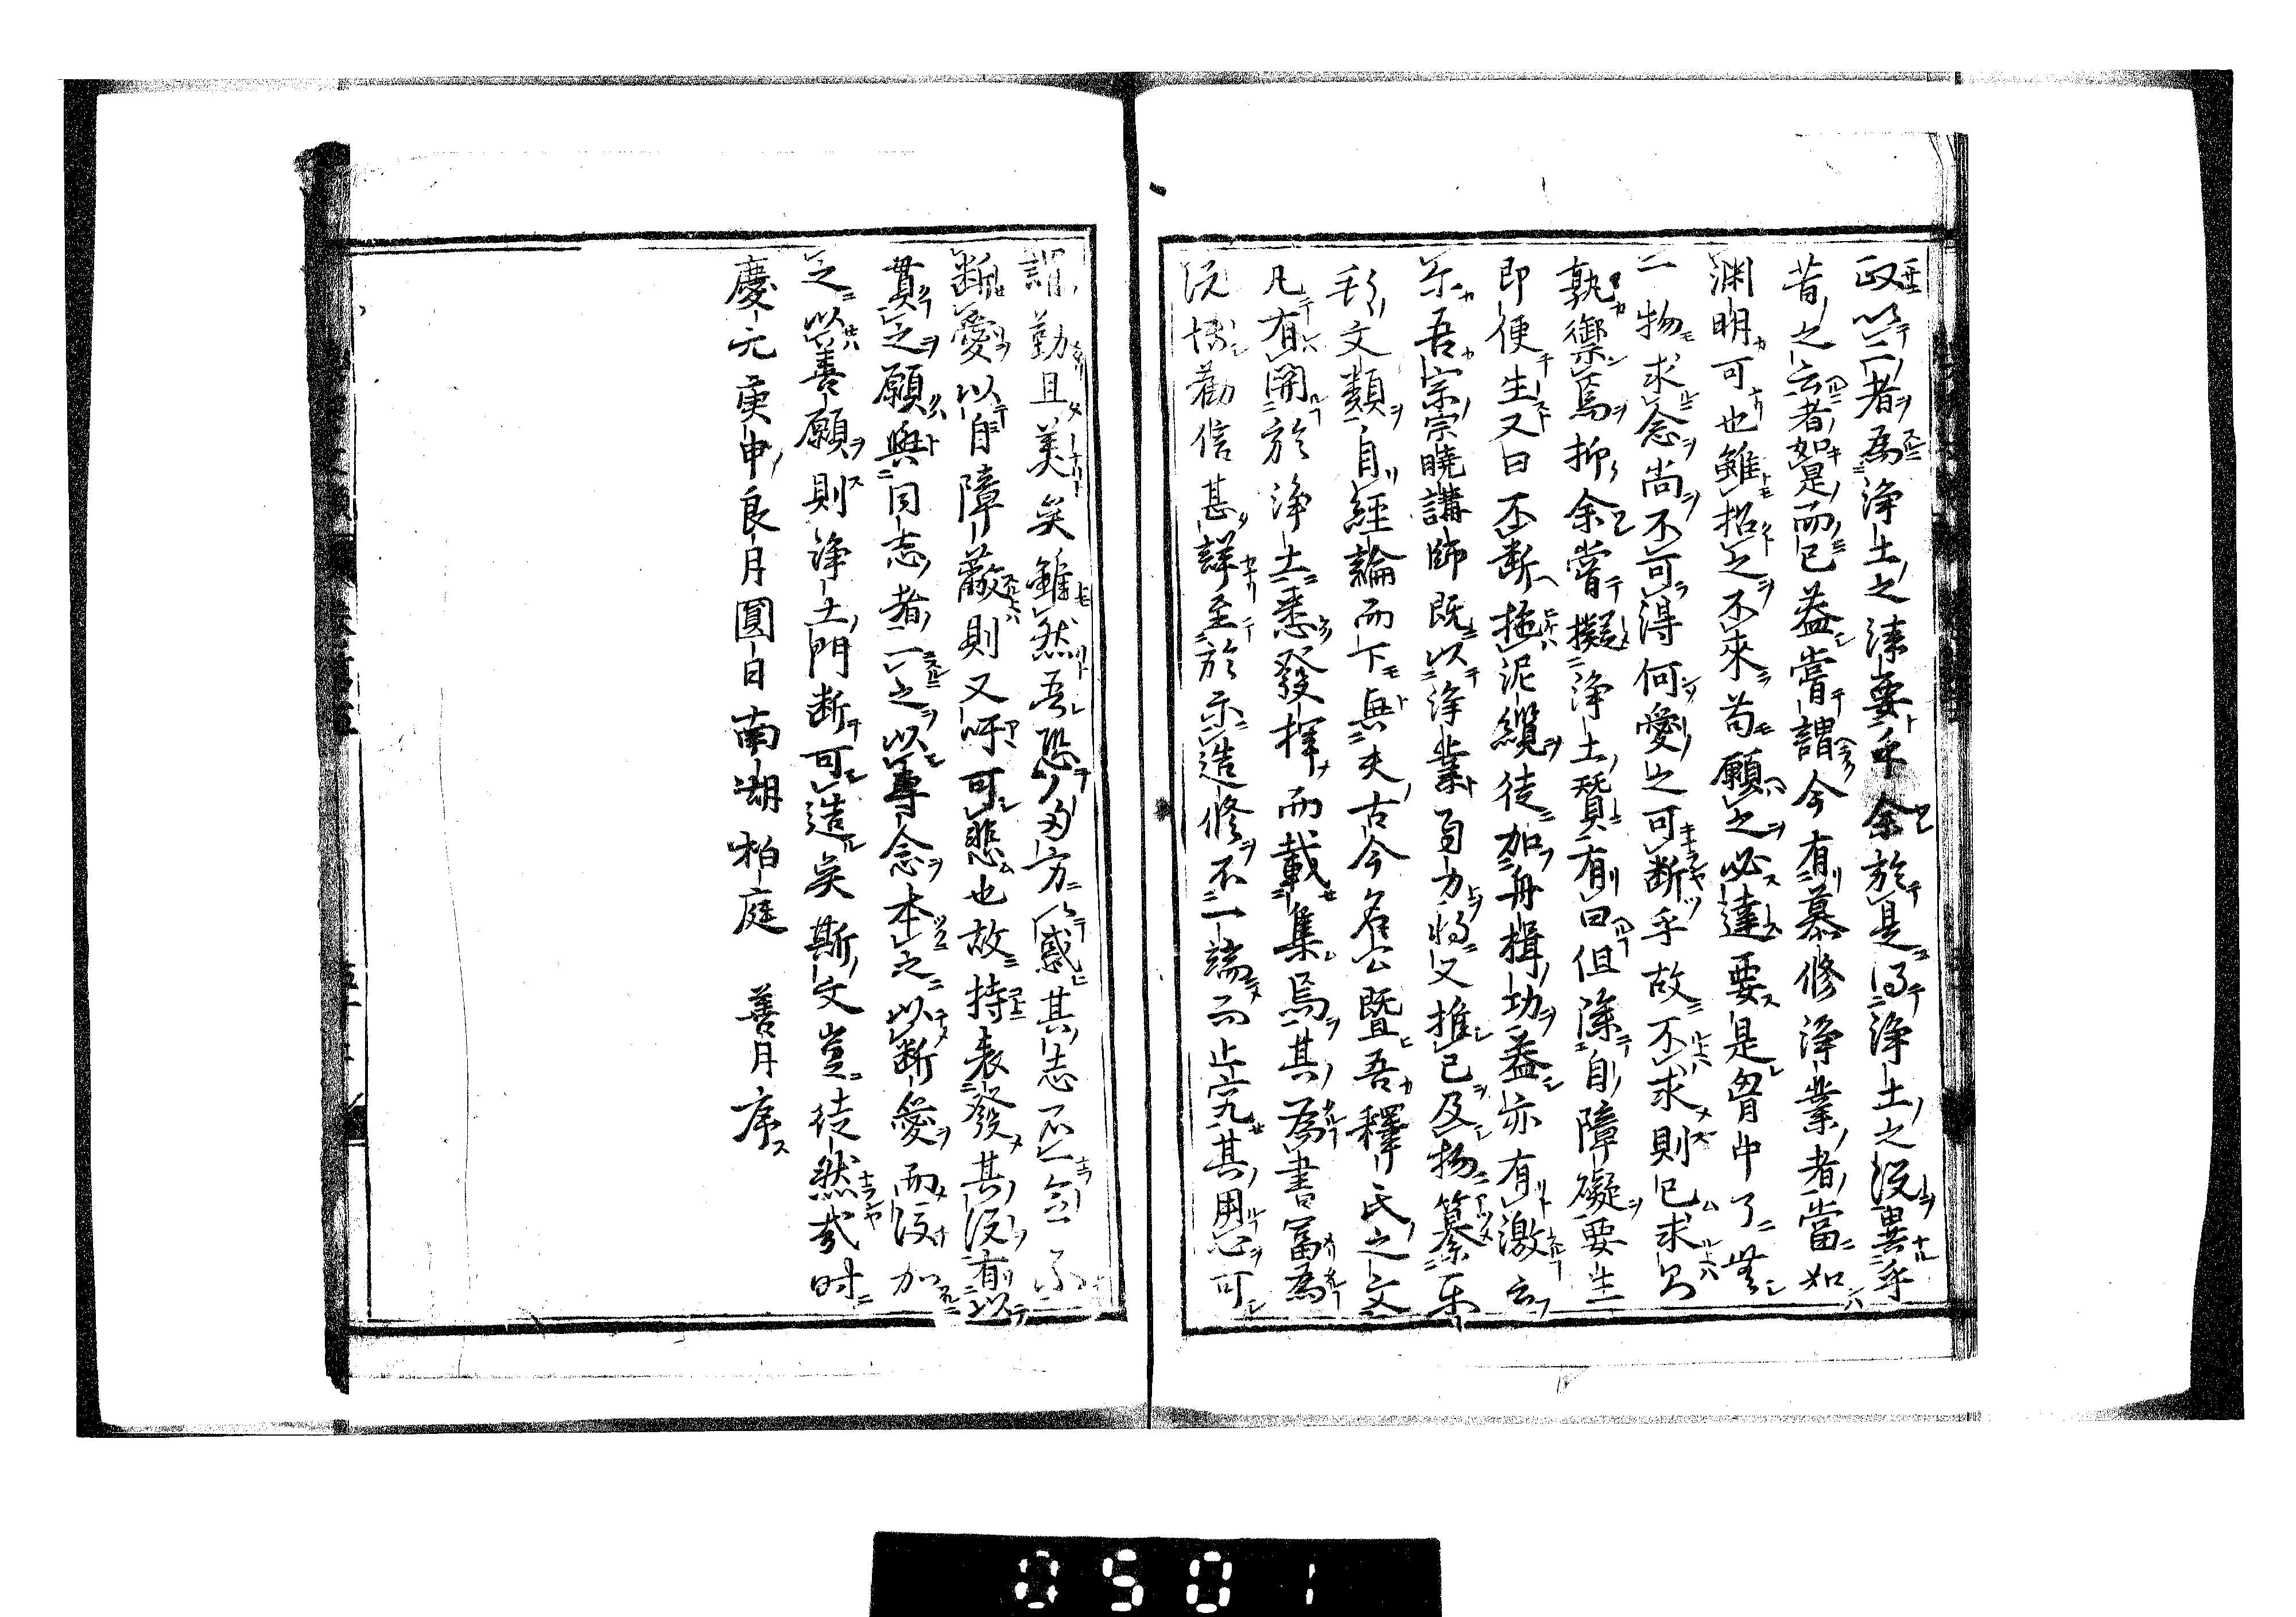 政以二者為淨土之津要乎余於是得淨土之說異乎
昔之云者如是而已蓋嘗謂今有慕修淨業者當如
淵明可也雖招之不來苟願之必達要是胷中了無
一物求念尚不可得何愛之可断乎故不求則已求焉
孰禦焉抑余嘗擬淨土賛有曰但除自障礙要生
即便生又曰不断拖泥纜徒加舟楫功蓋亦有激云
尓吾宗宗曉講師既以淨業自力將又推已及物纂樂
邦文類自經論而下與夫古今名公曁吾釋氏之文
凡有開於淨土悉發揮而載集焉其為書富為
說博勸信甚詳至於示造修不一端而止究其用心可
謂勤且美矣雖然吾恐以多方惑其志不一念不
断愛以自障蔽則又呼可悲也故持表發其說有以
貫之願與同志者一之以專念本之以断愛而後加
之以善願則淨土門断可造矣斯文豈徒然哉时
慶元庚申良月圓日南湖柏庭　善月序
0501